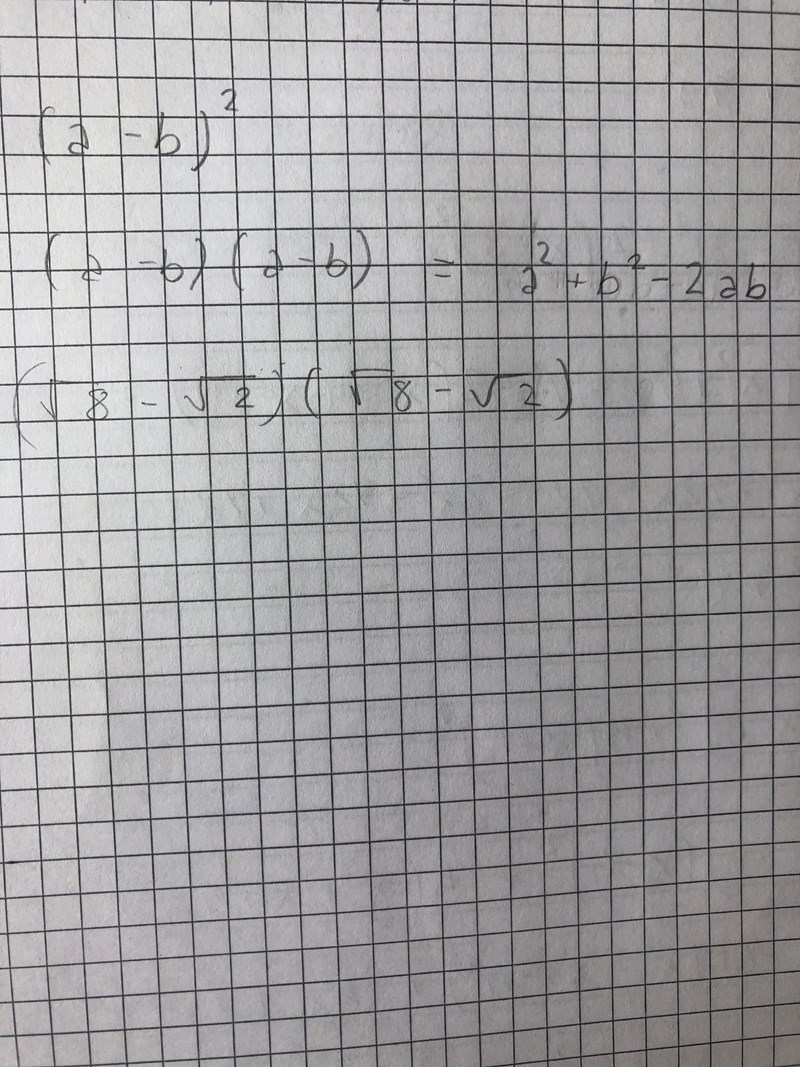 (a - b)²
(a - b) (a - b) = a² + b² - 2ab
(√8 - √2) (√8 - √2)